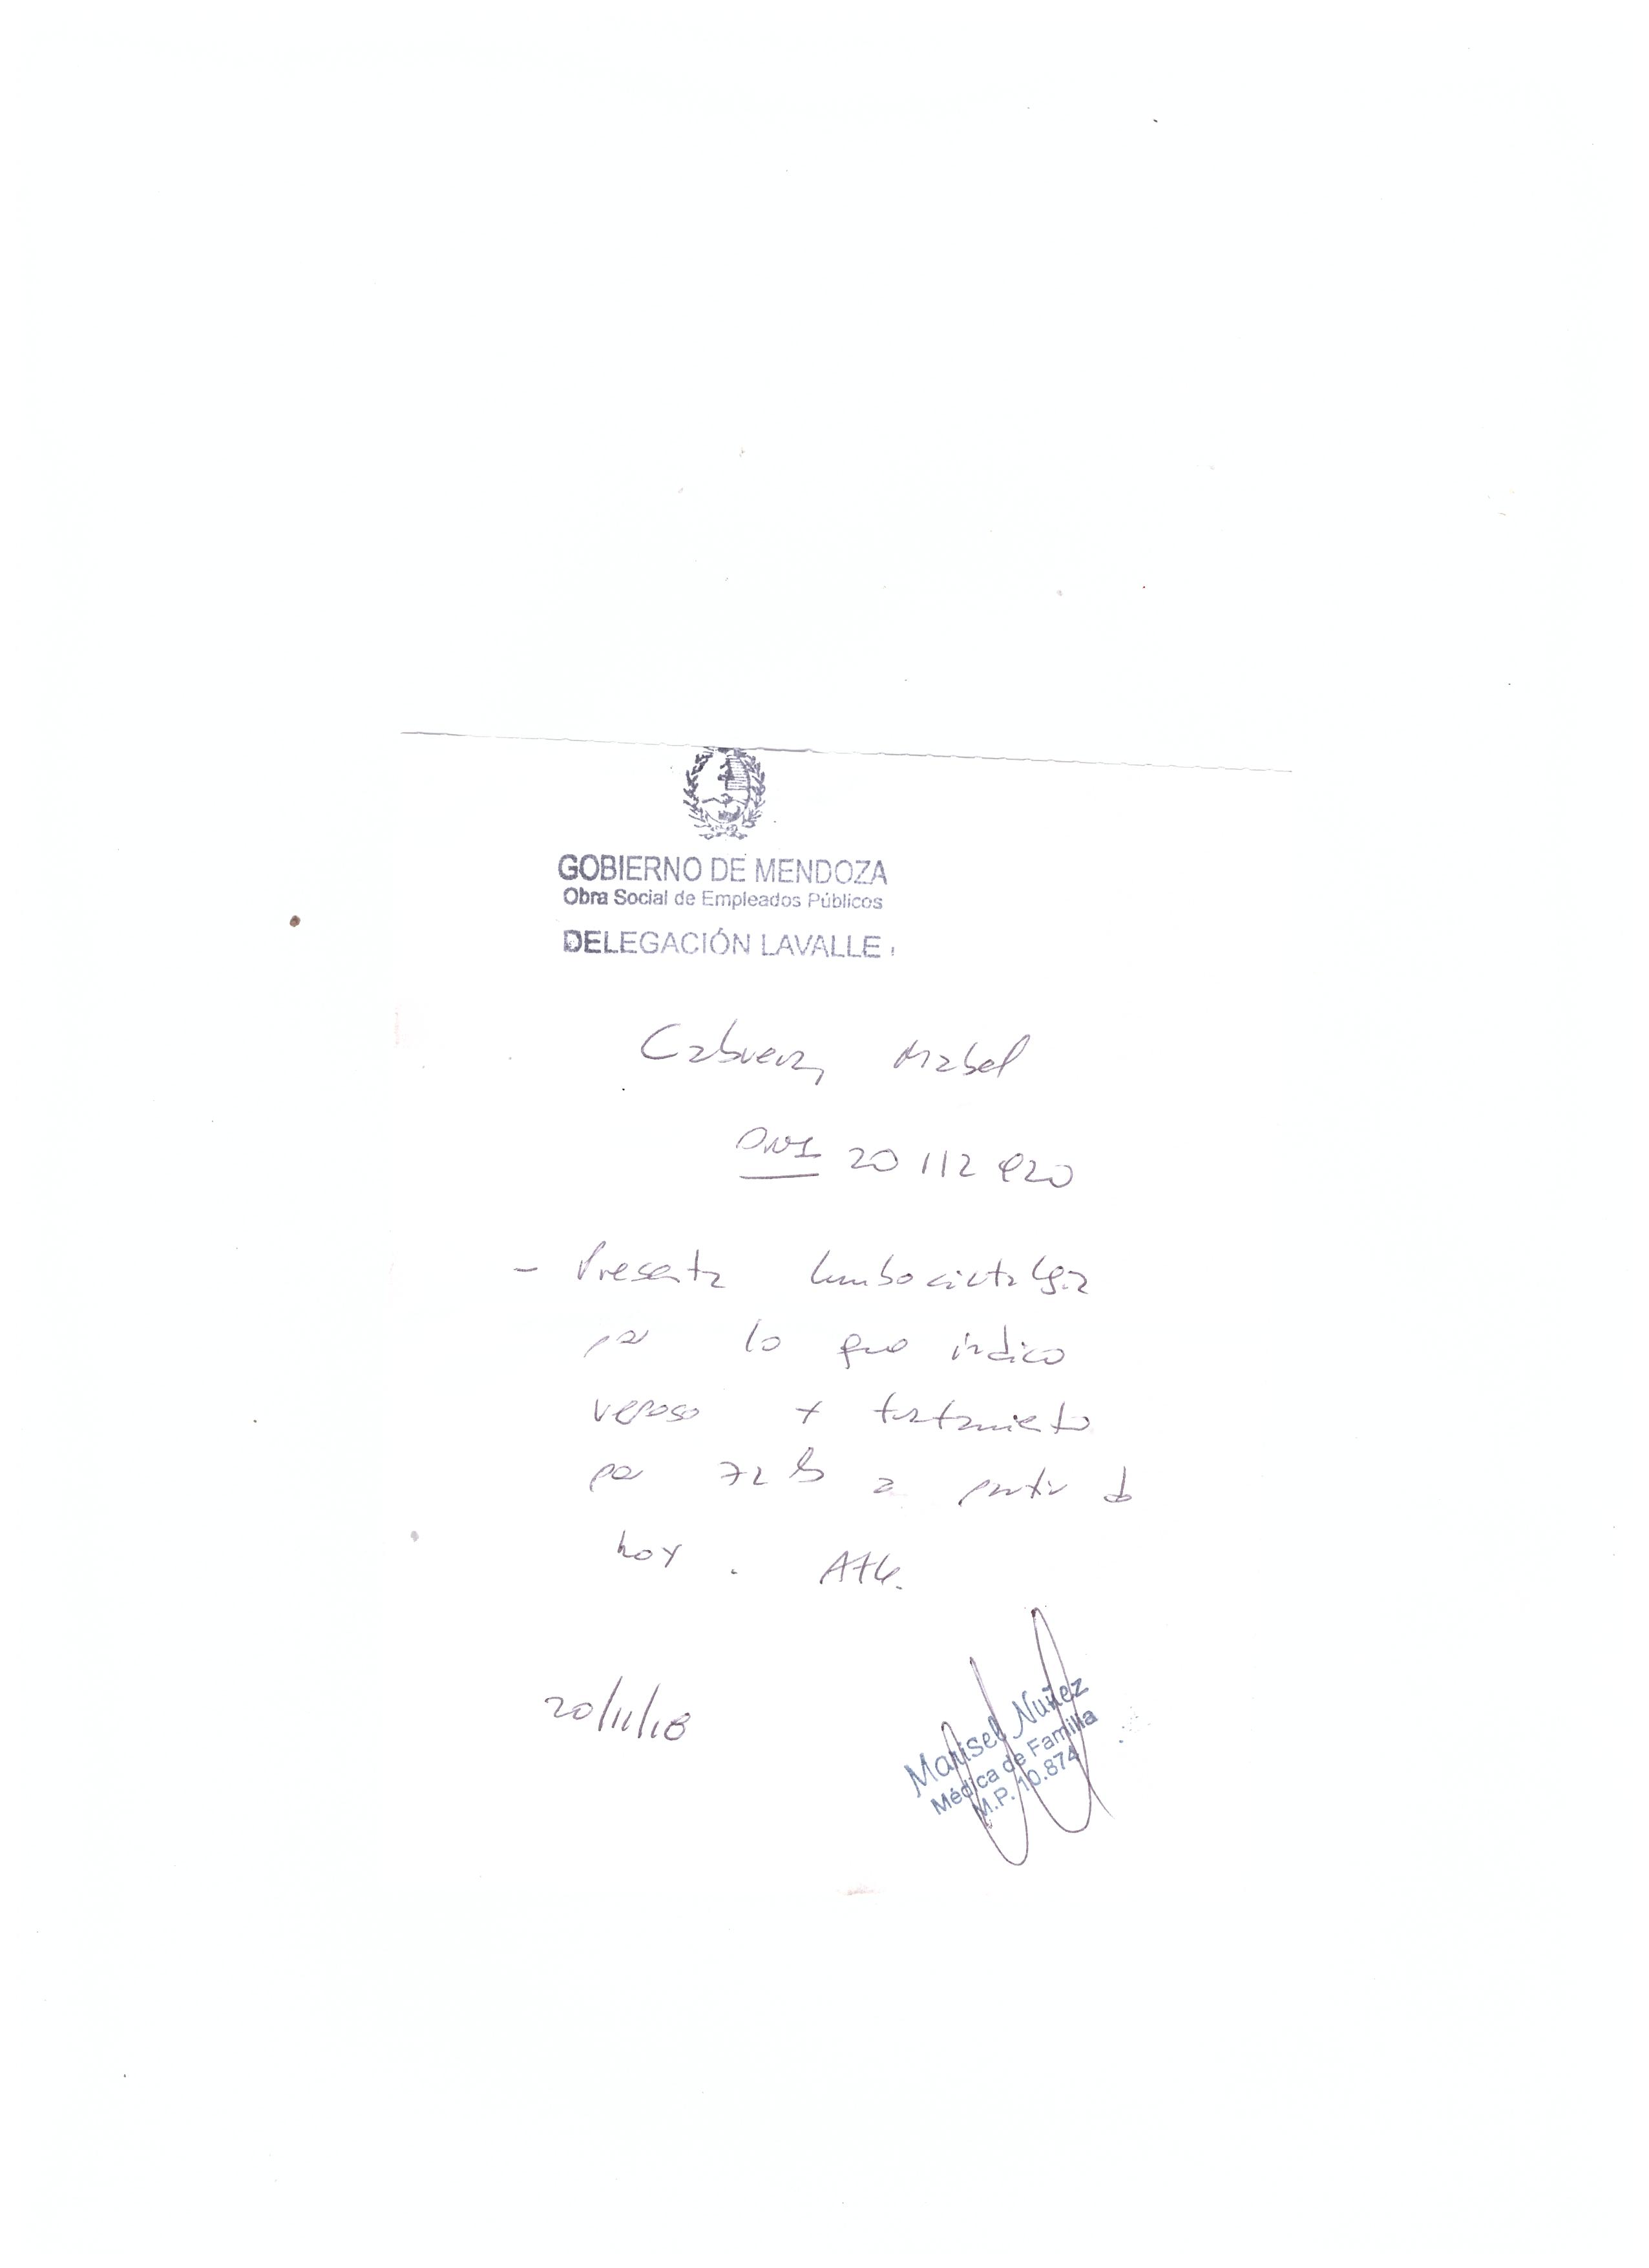 GOBIERNO DE MENDOZA
Obra Social de Empleados Públicos
DELEGACIÓN LAVALLE
Cabrera, Mabel
DNI 20 112 920
- Presenta lumbociatalgia
por lo que indico
reposo + tratamiento
por 72 hs a partir de
hoy. Atte.
20/11/18
Marisel Nuñez
Médica de Familia
M.P. 10.874